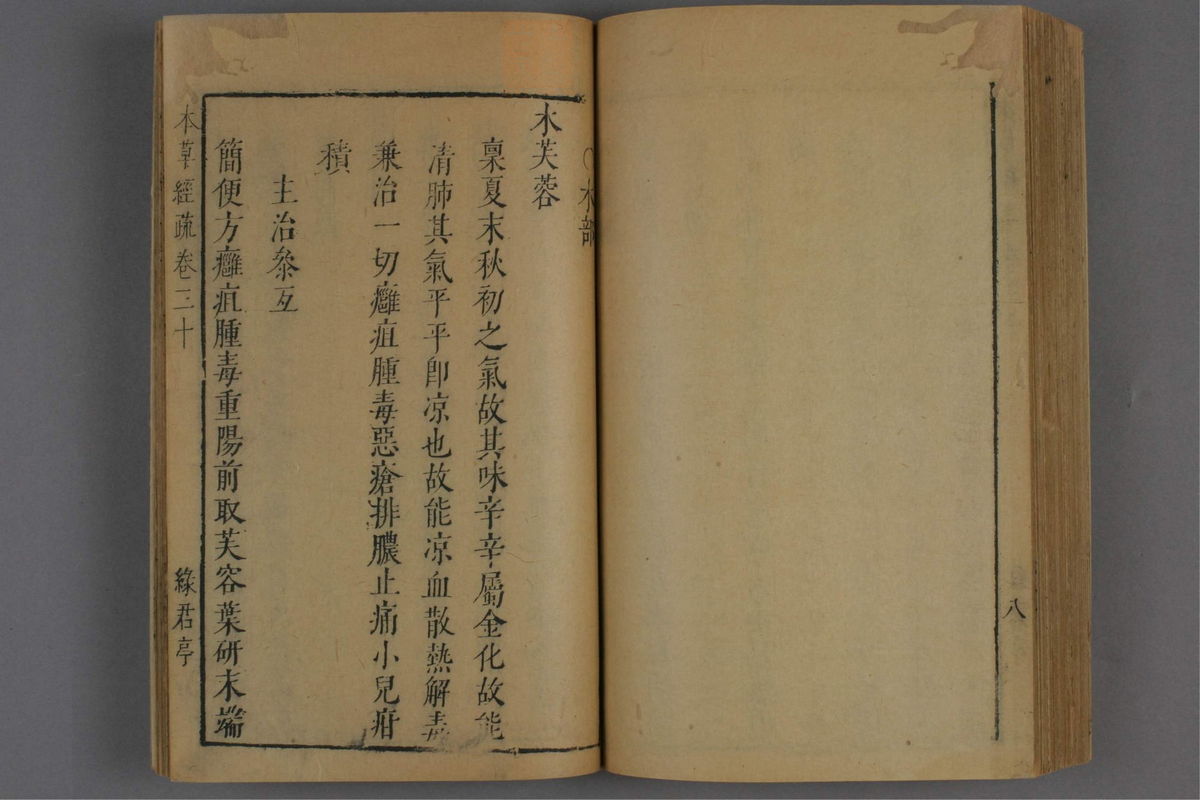 八
木部
木芙蓉
稟夏末秋初之氣故其味辛辛屬金化故能
清肺其氣平平卽凉也故能凉血散熱解毒
兼治一切癰疽腫毒惡瘡排膿止痛小兒疳
積
主治叅互
簡便方癰疽腫毒重陽前取芙容葉研末端
本草經疏卷三十
綠君亭